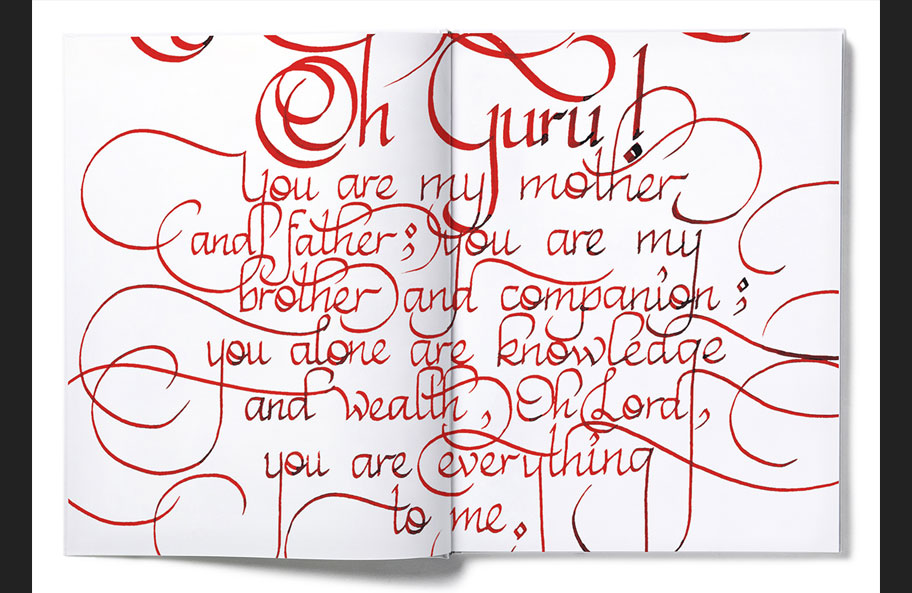 Oh Guru!
You are my mother
and father; you are my
brother and companion;
you alone are knowledge
and wealth, Oh Lord,
you are everything
to me.